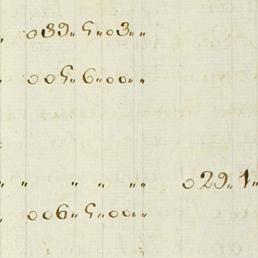 „ 039„ 5„ 03„ „
„ 005„ 6„ 00„ „
„ „ „ „ „ „ „ 029„ 1„
„ 006„ 5„ 00„ „